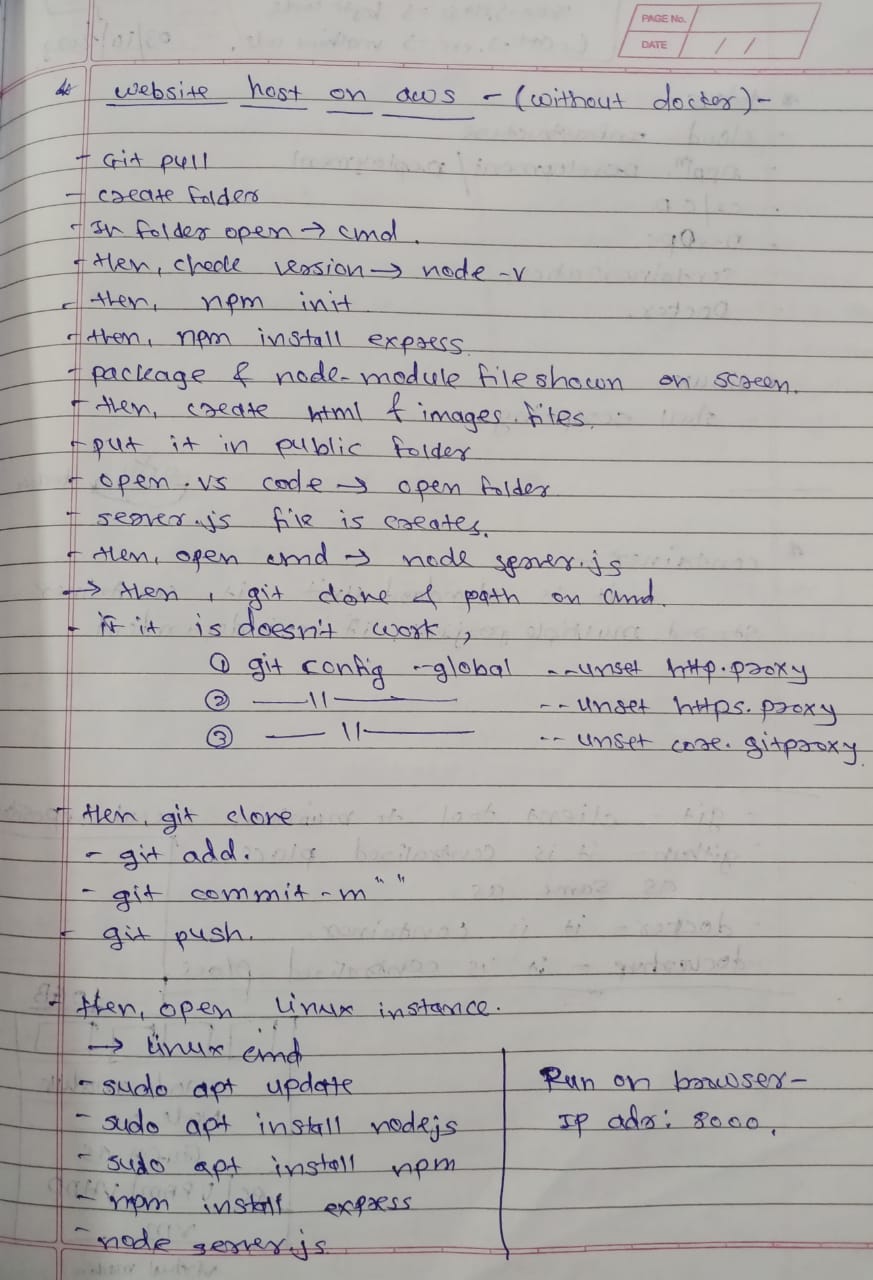 PAGE No.
DATE / /
website host on aws - (without docker) -
- Git pull
- create folder
- In folder open → cmd.
- then, check version → node -v
- then, npm init
- then, npm install express
- package & node-module file shown on screen.
- then, create html & images files.
- put it in public folder
- open vs code → open folder
- server.js file is creates.
- then, open cmd → node server.js
→ then, git clone & path on cmd.
- if it is doesn't work,
① git config --global --unset http.proxy
② —— 11 —— -- unset https.proxy
③ —— 11 —— -- unset core.gitproxy
- then, git clone
- git add.
- git commit -m " "
- git push.
- then, open linux instance.
→ linux cmd
- sudo apt update
- sudo apt install nodejs
- sudo apt install npm
- npm install express
- node server.js
Run on browser -
IP adr: 8000.